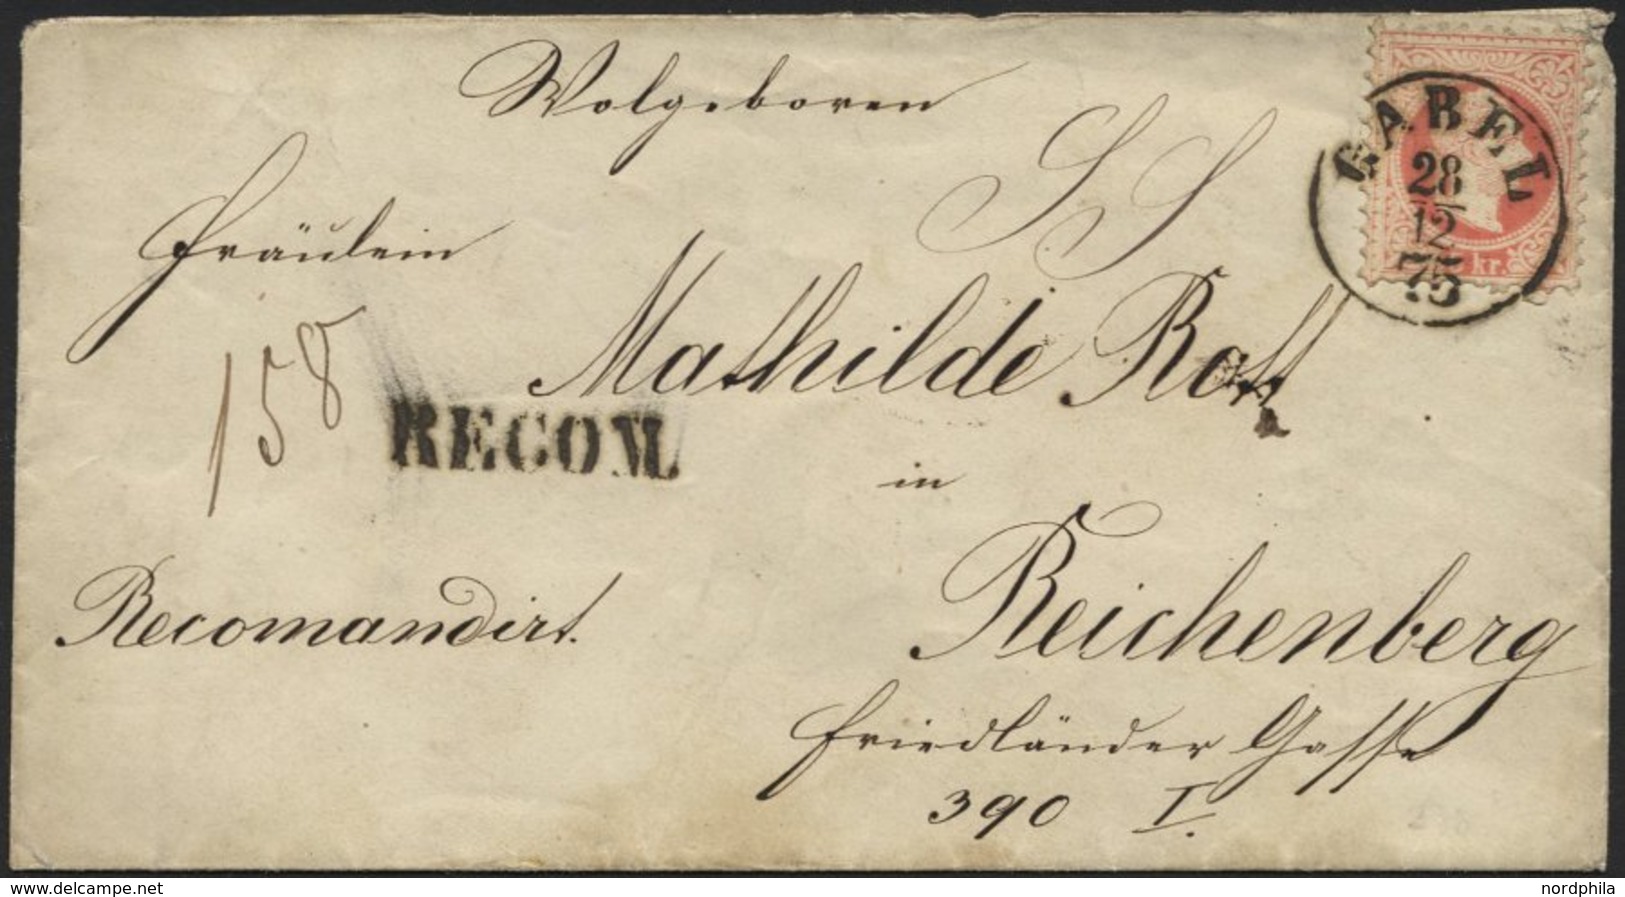 Wolgeboren
GABEL
28
12
75
kr.
Fräulein
S S
Mathilde Rott
158
RECOM.
in
Recomandirt.
Reichenberg
Friedländer Gasse
390 I.
www.delcampe.net
nordphila